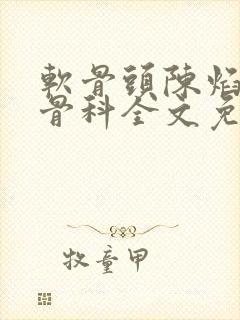 軟骨頭陳焰
骨科全文免
牧童甲